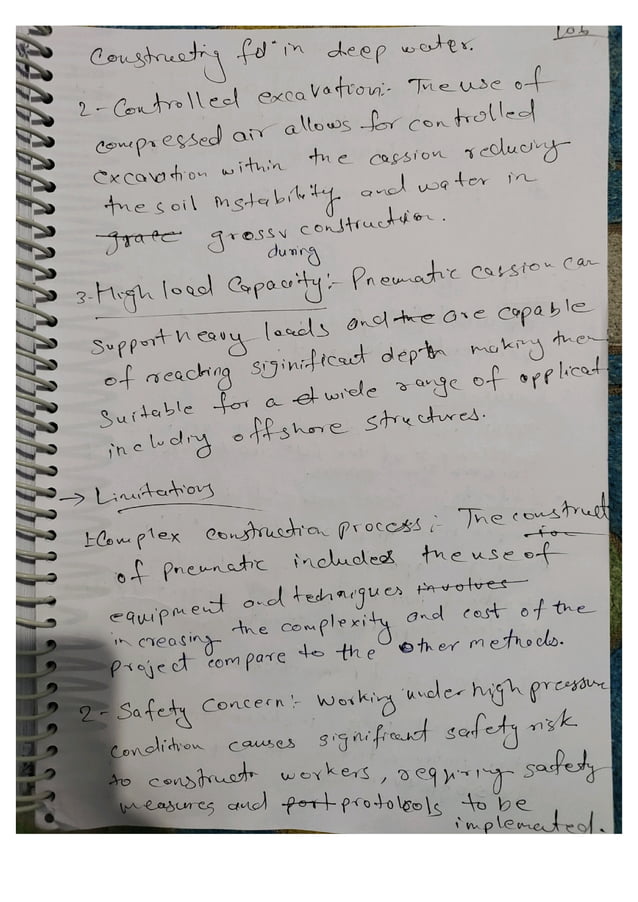 106
Constructing fdⁿ in deep water.
2- Controlled excavation:- The use of
compressed air allows for controlled
excavation within the cassion reducing
the soil instability and water in
grace grossv construction.
during
3- High load Capacity:- Pneumatic cassion can
support heavy loads and the are capable
of reaching siginificant depth making them
Suitable for a et wide range of applicat
including offshore structures.
→ Limitations
1- Complex construction process:- The construct
tion
of pneunatic includes the use of
equipment and techniques involves
increasing the complexity and cost of the
project compare to the other methods.
2- Safety Concern:- Working under high pressure
condition causes significant safety risk
to construct workers, requiring safety
measures and port protolools to be
implemated.